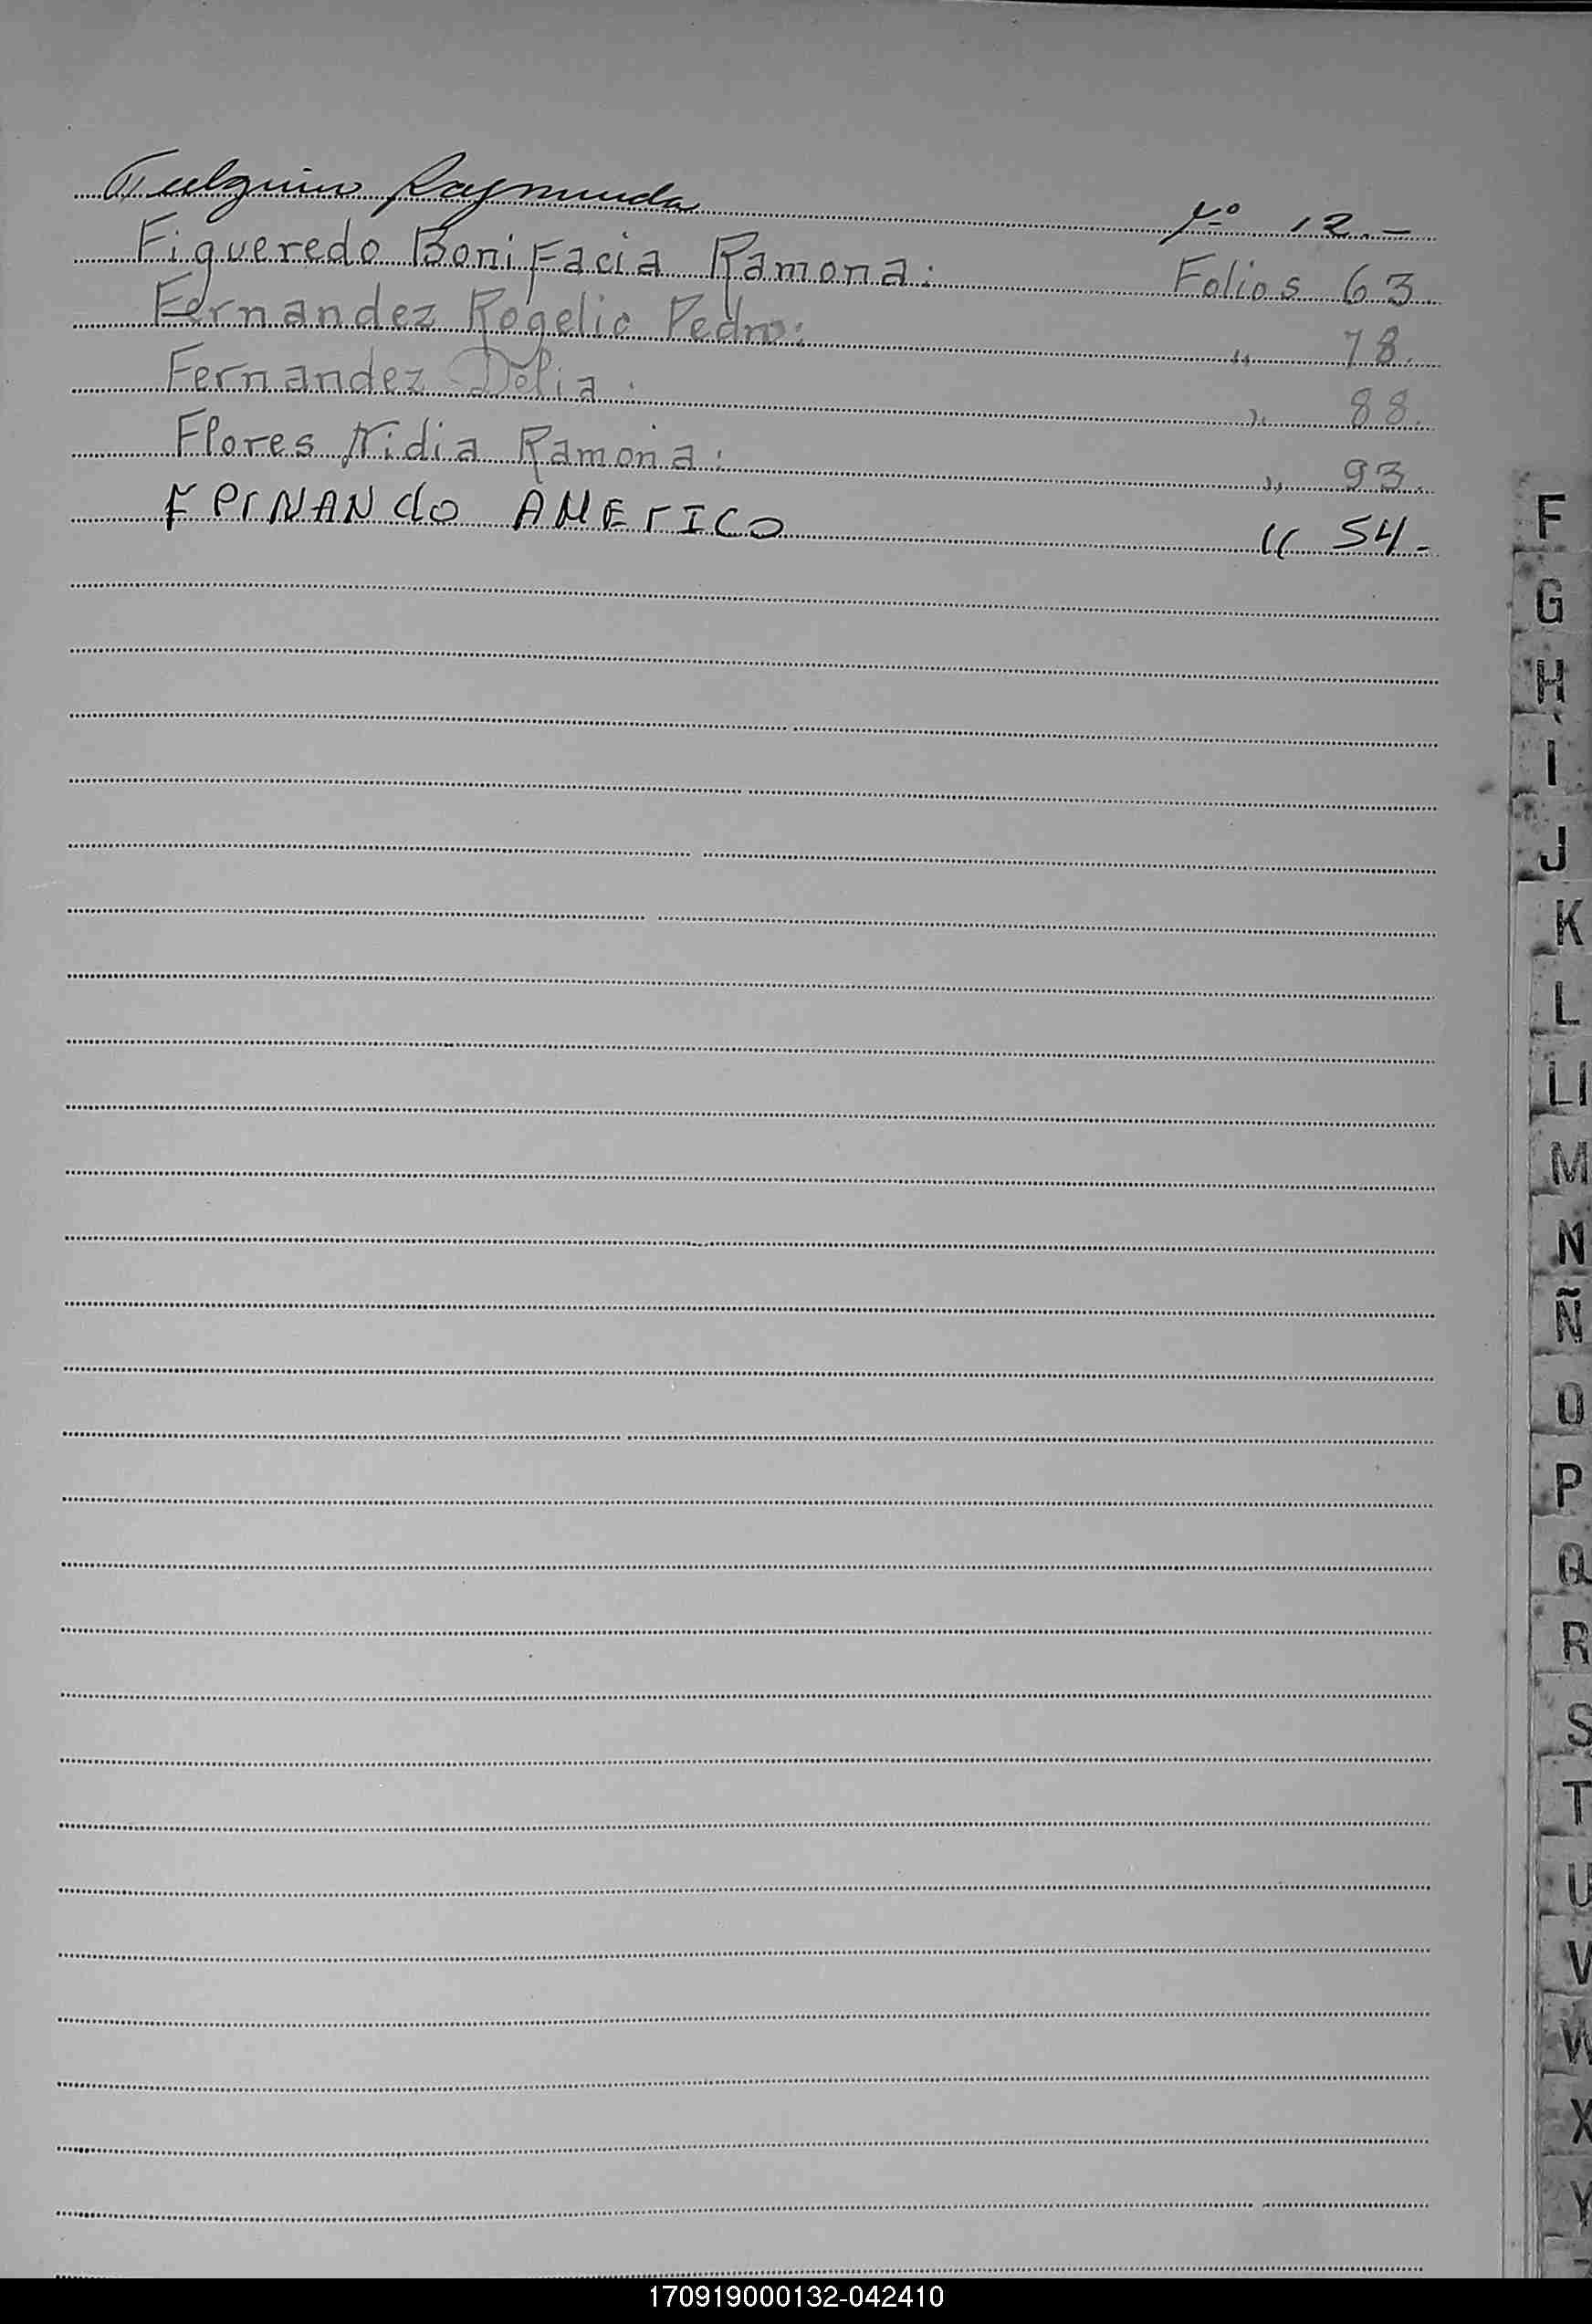 Raymunda Fº 12.-
Figueredo Bonifacia Ramona: Folios 63.
Fernandez Rogelio Pedro: " 78.
Fernandez Delia: " 88.
Flores Nidia Ramona: " 93.
FerNANdo AMErICO " 54.-
F
G
H
I
J
K
L
Ll
M
N
Ñ
O
P
Q
R
S
T
U
V
W
X
Y
170919000132-042410